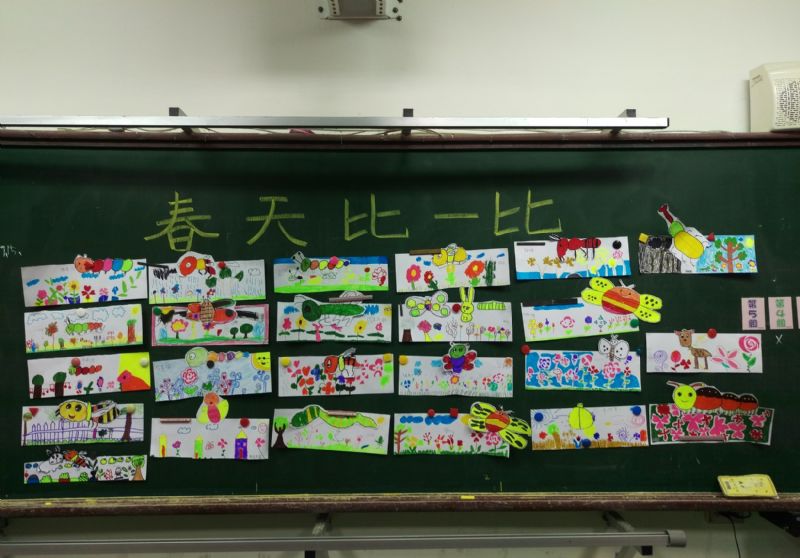 春天比一比
第5組
第4組